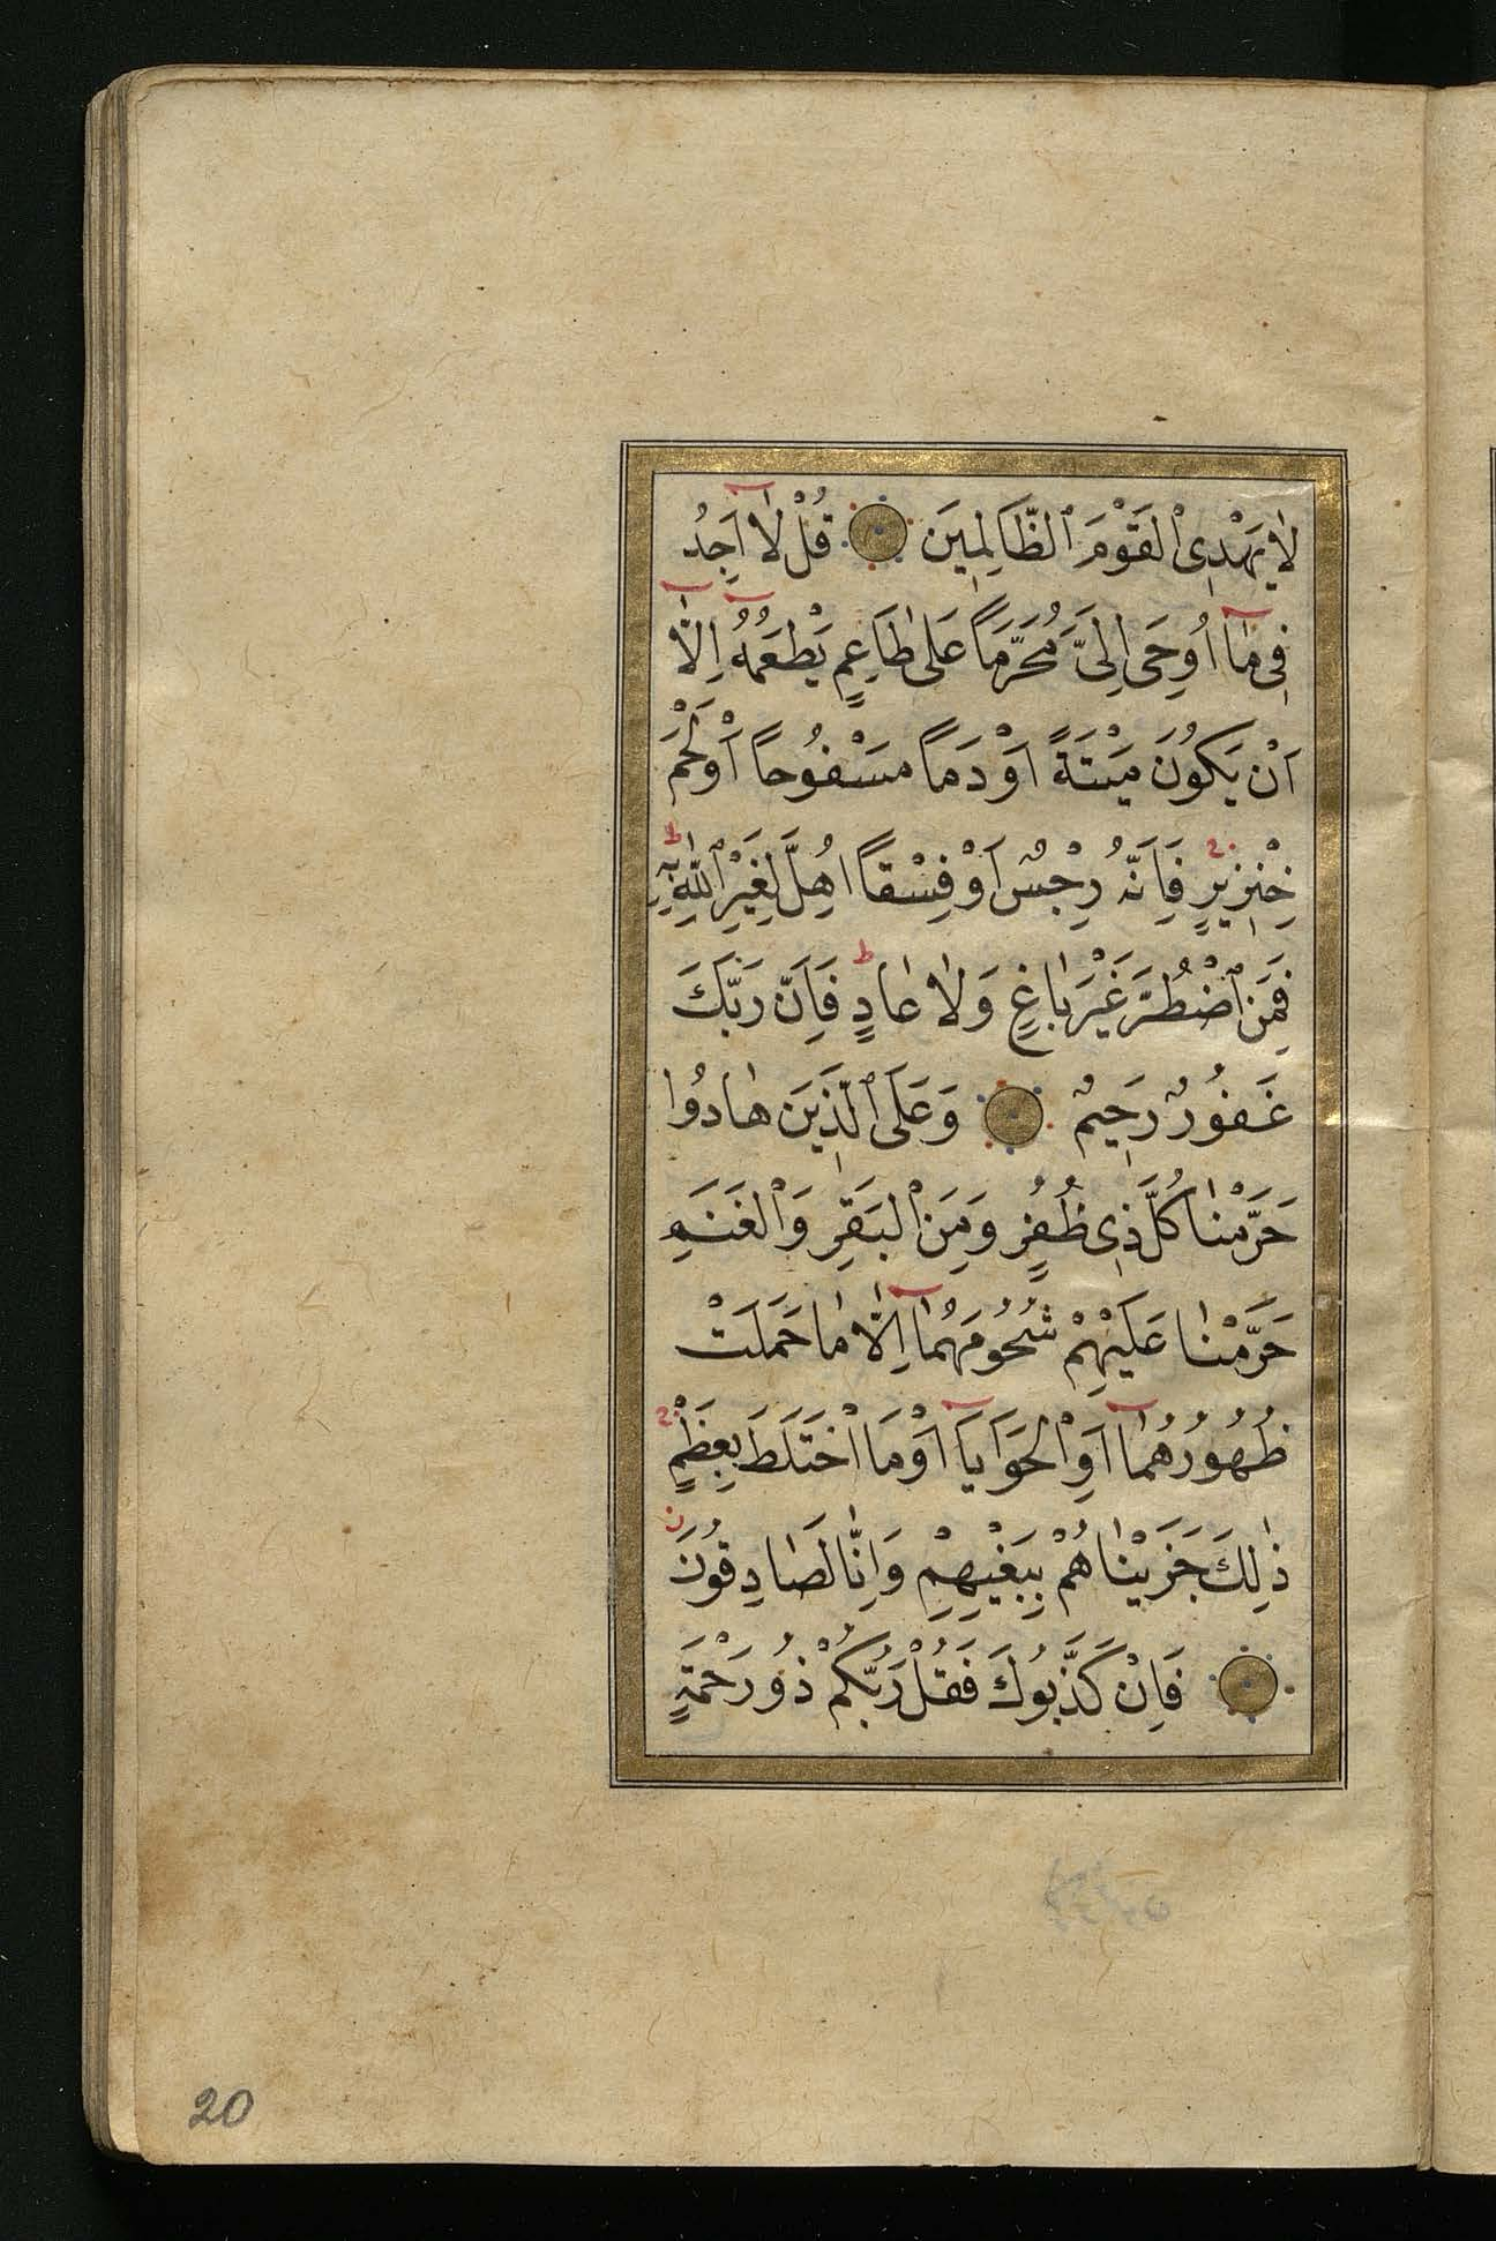 لَا يَهْدِى ٱلْقَوْمَ ٱلظَّالِمِينَ قُلْ لَا اَجِدُ
فِى مَا اُوحِىَ اِلَىَّ مُحَرَّمًا عَلٰى طَاعِمٍ يَطْعَمُهُ اِلَّا
اَنْ يَكُونَ مَيْتَةً اَوْ دَمًا مَسْفُوحًا اَوْ لَحْمَ
خِنْزِيرٍ فَاِنَّهُ رِجْسٌ اَوْ فِسْقًا اُهِلَّ لِغَيْرِ ٱللّٰهِ بِهِ
فَمَنِ ٱضْطُرَّ غَيْرَ بَاغٍ وَلَا عَادٍ فَاِنَّ رَبَّكَ
غَفُورٌ رَحِيمٌ وَعَلَى ٱلَّذِينَ هَادُوا
حَرَّمْنَا كُلَّ ذِى ظُفُرٍ وَمِنَ ٱلْبَقَرِ وَٱلْغَنَمِ
حَرَّمْنَا عَلَيْهِمْ شُحُومَهُمَا اِلَّا مَا حَمَلَتْ
ظُهُورُهُمَا اَوِ ٱلْحَوَايَا اَوْ مَا ٱخْتَلَطَ بِعَظْمٍ
ذٰلِكَ جَزَيْنَاهُمْ بِبَغْيِهِمْ وَاِنَّا لَصَادِقُونَ
فَاِنْ كَذَّبُوكَ فَقُلْ رَبُّكُمْ ذُو رَحْمَةٍ
20